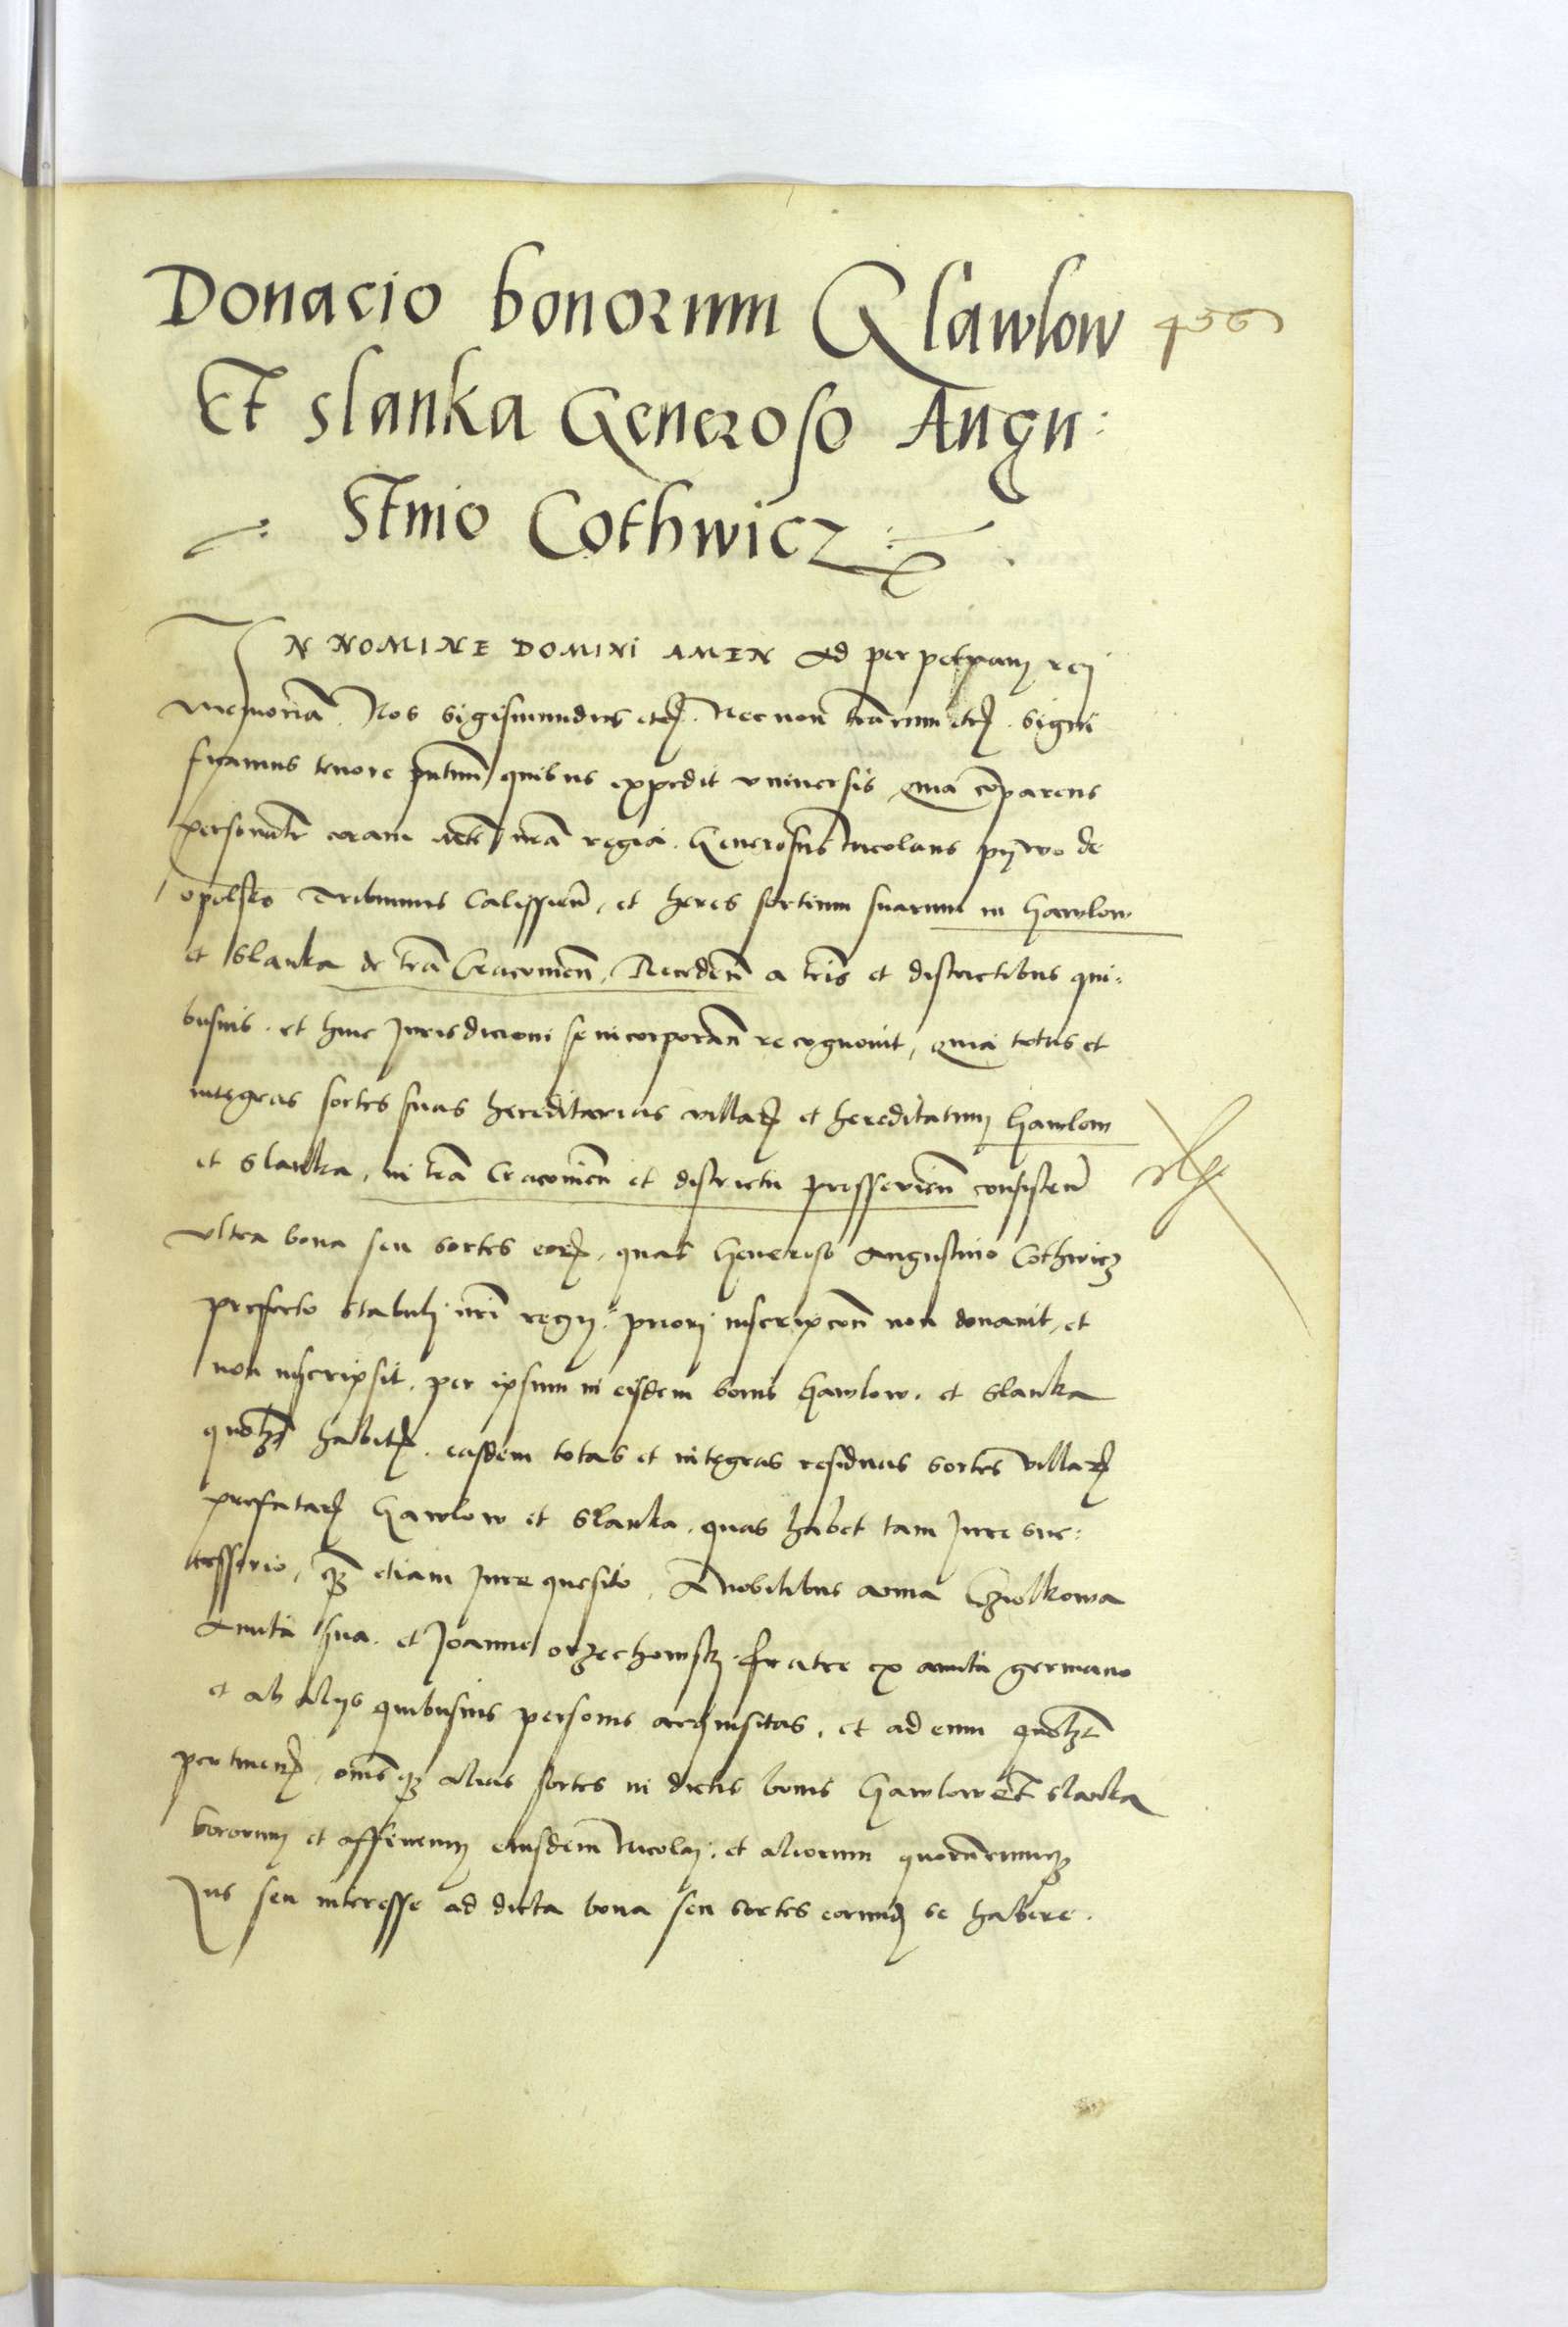 Donacio bonorum Glawlow 456
Et Slanka Generoso Augu:
Stino Cothwicz
IN NOMINE DOMINI AMEN Ad perpetuam rei
memoriã. Nos Sigismundus etc. Necnon trãrum etc. Signi
ficamus tenore pñtium quibus expedit vniversis, Quia cõparens
personalr coram nobis et mtã regia. Generosus Nicolaus pijwo de
opolsko Tribunus Calissieñ, et heres sortium suarum in Gawlow
et Slanka de trã Cracovieñ, Recedeñ a tris et districtibus qui:
busvis. et huic Jurisdicioni se incorporañ recognovit, Quia totas et
integras sortes suas hereditarias villarum et hereditatum Gawlow
et Slanka, in trã Cracovieñ et districtu prossovieñ consisteñ
vltra bona seu sortes eorum, quas Generoso Augustino Cothwicz
prefecto stabuli nrĩ regij, priori inscripcoñ non donavit, et
non inscripsit, per ipsum in eisdem bonis Gawlow. et Slanka
habit. easdem totas et integras residuas sortes villarum
prefatarum Gawlow et Slanka, quas habet tam Jure suc:
cessorio, etiam Jure quesito, A nobilibus anna Cziolkowa
Amita sua. et Joanne orzechowskj fratre ex amita germano
et ab alijs quibusvis personis acquisitas. et ad eum
pertineñ, omẽsque alias sortes in dictis bonis Gawlow et Slanka
sororum et affinium eiusdem Nicolaj. et aliorum quorumcumque
Jus seu interesse ad dicta bona seu sortes eorum se habere.